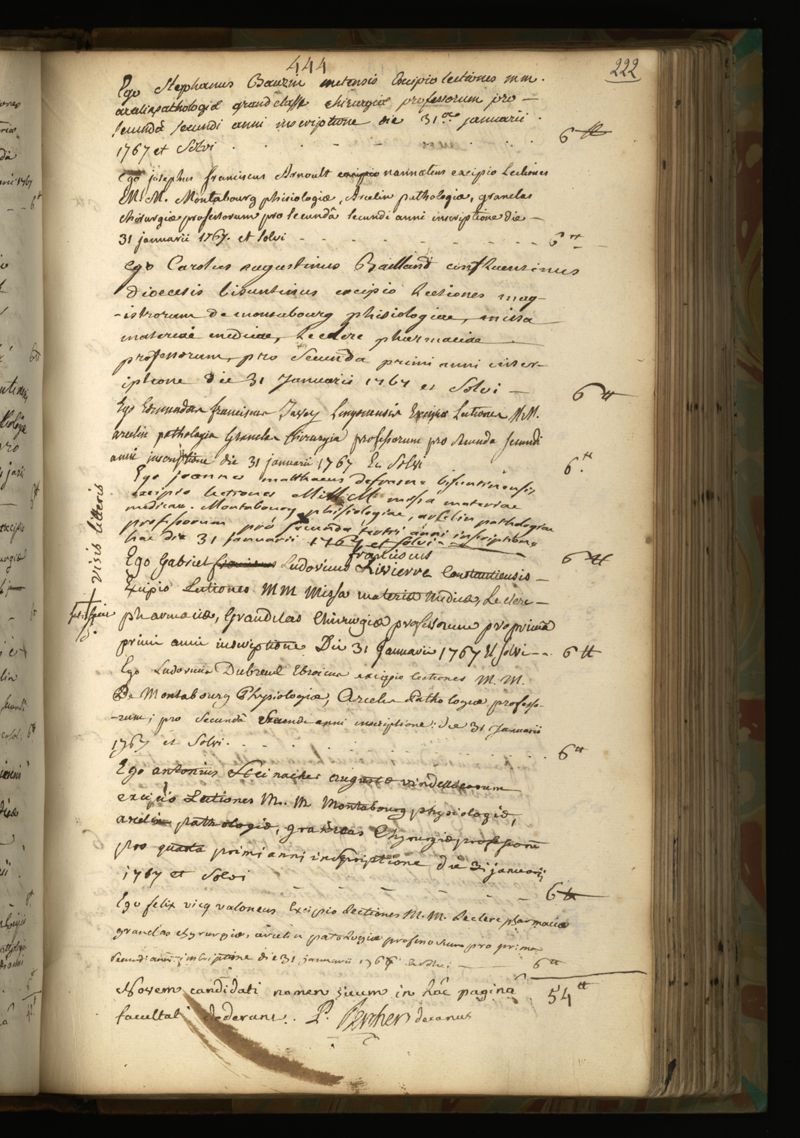 444
222
Ego Stephanus Bauzin metensis Excipio lectiones mm.
arcelin pathologiæ grandclass chirurgiæ professorum pro
secundâ secundi anni inscriptione die 31a januarii
1767 et Solvi 6 ₶
Ego josephus franciscus Arnoult nannatens excipio Lectiones
M. M. Montabourg phisiologiæ, Arcelin pathologiæ, granclas
chirurgiæ professorum pro secundâ secundi anni inscriptione die
31 januarii 1767. et solvi 6 ₶
Ego Carolus augustinus Bailland confluentinus
dioecesis bisuntinus excipio Lectiones mag-
-istrorum de montabourg phisiologiae, missa
materiae medicae, Leclerc pharmaciae
professorum, pro Secunda primi anni inscr-
iptione die 31 Januarii 1767 et Solvi 6 ₶
Ego Edmundus franciscus Excipio Lectiones M.M.
arcelin pathologia Granclas chirurgia professorum pro secunda secundi
anni inscriptione die 31 januarii 1767 Et Solvi 6 ₶
Ego joannes matthaeus bisuntinensis
excipio lectiones M.M. missa materiae
medicae, Montabourg phisiologiae, arcelin pathologiae
professorum pro secunda anni inscriptione
hac die 31 Januarii 1767 et solvi 6 ₶
visis litteris
franciscus
Ego Gabriel Ludovicus Rivierre Constantiensis
Excipio Lectiones MM Missa materiæ Medicæ, Leclerc
pharmaciæ, Grandclas Chirurgiæ professorum pro primâ
primi anni inscriptione Die 31 Januarii 1767 Et solvi 6 ₶
Ego Ludovicus Dubreuil Ebroicus excipio lectiones M. M.
De Montabourg Physiologiæ, Arcelin Pathologiæ professo-
-rum; pro Secundâ Secundi anni inscriptione: die 31 Januarii
1767 et Solvi. 6 ₶
Ego antonius Steinacher augustæ vindelicorum
excipio Lectiones M. M Montabourg physiologiæ,
arcelin pathologiæ, grandclas Chyrurgiæ professorum
pro quarta primi anni inscriptione die 31 januarii
1767 et Solvi 6 ₶
Ego felix vicq valoneus Excipio Lectiones M. M. Leclerc pharmaciæ
granclas chyrurgiæ, arcelin patologiæ professorum pro prima
secundi anni inscriptione die 31 januarii 1767 et solvi 6 ₶
Novem candidati nomen suum in hâc paginâ 54 ₶
facultati dederunt. P. Bercher decanus